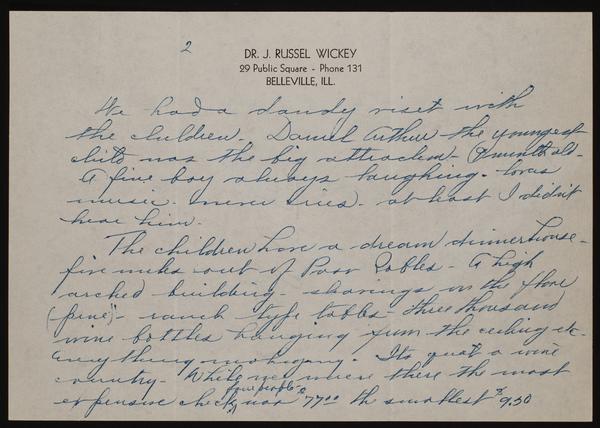 2
DR. J. RUSSEL WICKEY
29 Public Square - Phone 131
BELLEVILLE, ILL.
We had a dandy visit with
the children. Daniel Arthur the youngest
child was the big attraction - months old -
A fine boy always laughing - loves
music - never cries - at least I didn't
hear him.
The children have a dream dinner house -
five miles out of Paso Robles - A high
arched building - shavings on the floor
(pine) - ranch type tables - three thousand
wine bottles hanging from the ceiling etc.
Everything mahogany. Its quite a wine
country. While we were there the most
four people
expensive check was $77.00 the smallest $9.50